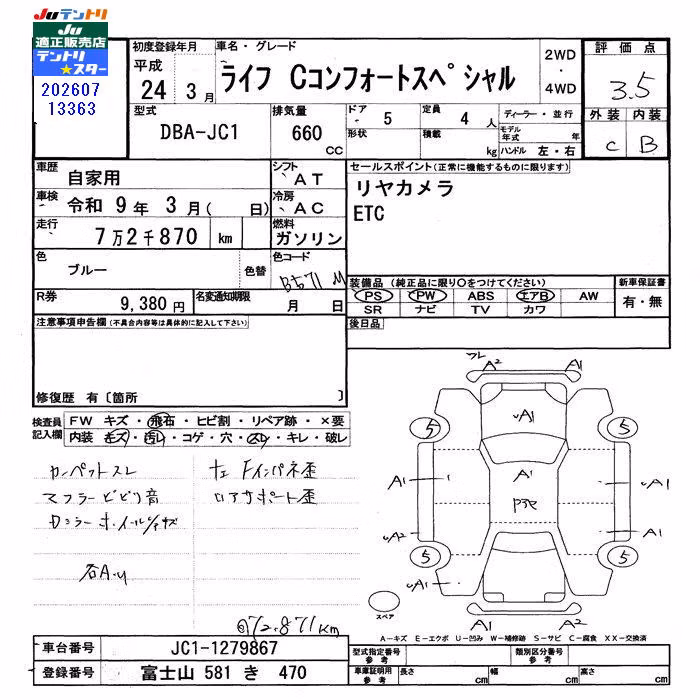 Juテントリ
Ju
適正販売店
テントリ
★スター
202607
13363
初度登録年月
平成
24 3月
車名・グレード
ライフ Cコンフォートスペシャル
2WD
・
4WD
評価点
3.5
外装 内装
C B
型式
DBA-JC1
排気量
660
CC
ドア
5
形状
定員
4 人
積載
kg
ディーラー・並行
モデル年式 年
ハンドル 左・右
車歴
自家用
シフト
AT
車検
令和 9年 3月( 日)
冷房
AC
走行
7万2千870 km
燃料
ガソリン
色
ブルー
色替
色コード
B571M
R券
9,380円
名変通知期限
月 日
セールスポイント(正常に機能するものに限ります)
リヤカメラ
ETC
装備品 (純正品に限り○をつけてください)
PS PW ABS エアB AW
SR ナビ TV カワ
新車保証書
有・無
後日品
注意事項申告欄(不具合内容等は具体的に記入して下さい)
修復歴 有〔箇所 〕
検査員
記入欄
FW キズ・飛石・ヒビ割・リペア跡・×要
内装 キズ・汚レ・コゲ・穴・スレ・キレ・破レ
カーペットスレ
マフラービビリ音
左Fインパネ歪
ロアサポート歪
右A.u
72.871km
フレ
A2 A1
uA1
5 5
A1 A1 uA1
uA2 A1
5 5
uA1
A1 A2
スペア
A-キズ E-エクボ U-凹み W-補修跡 S-サビ C-腐食 XX-交換済
車台番号
JC1-1279867
登録番号
富士山 581 き 470
型式指定番号
参考
類別区分番号
参考
車庫証明用
参考
長さ cm
幅 cm
高さ cm